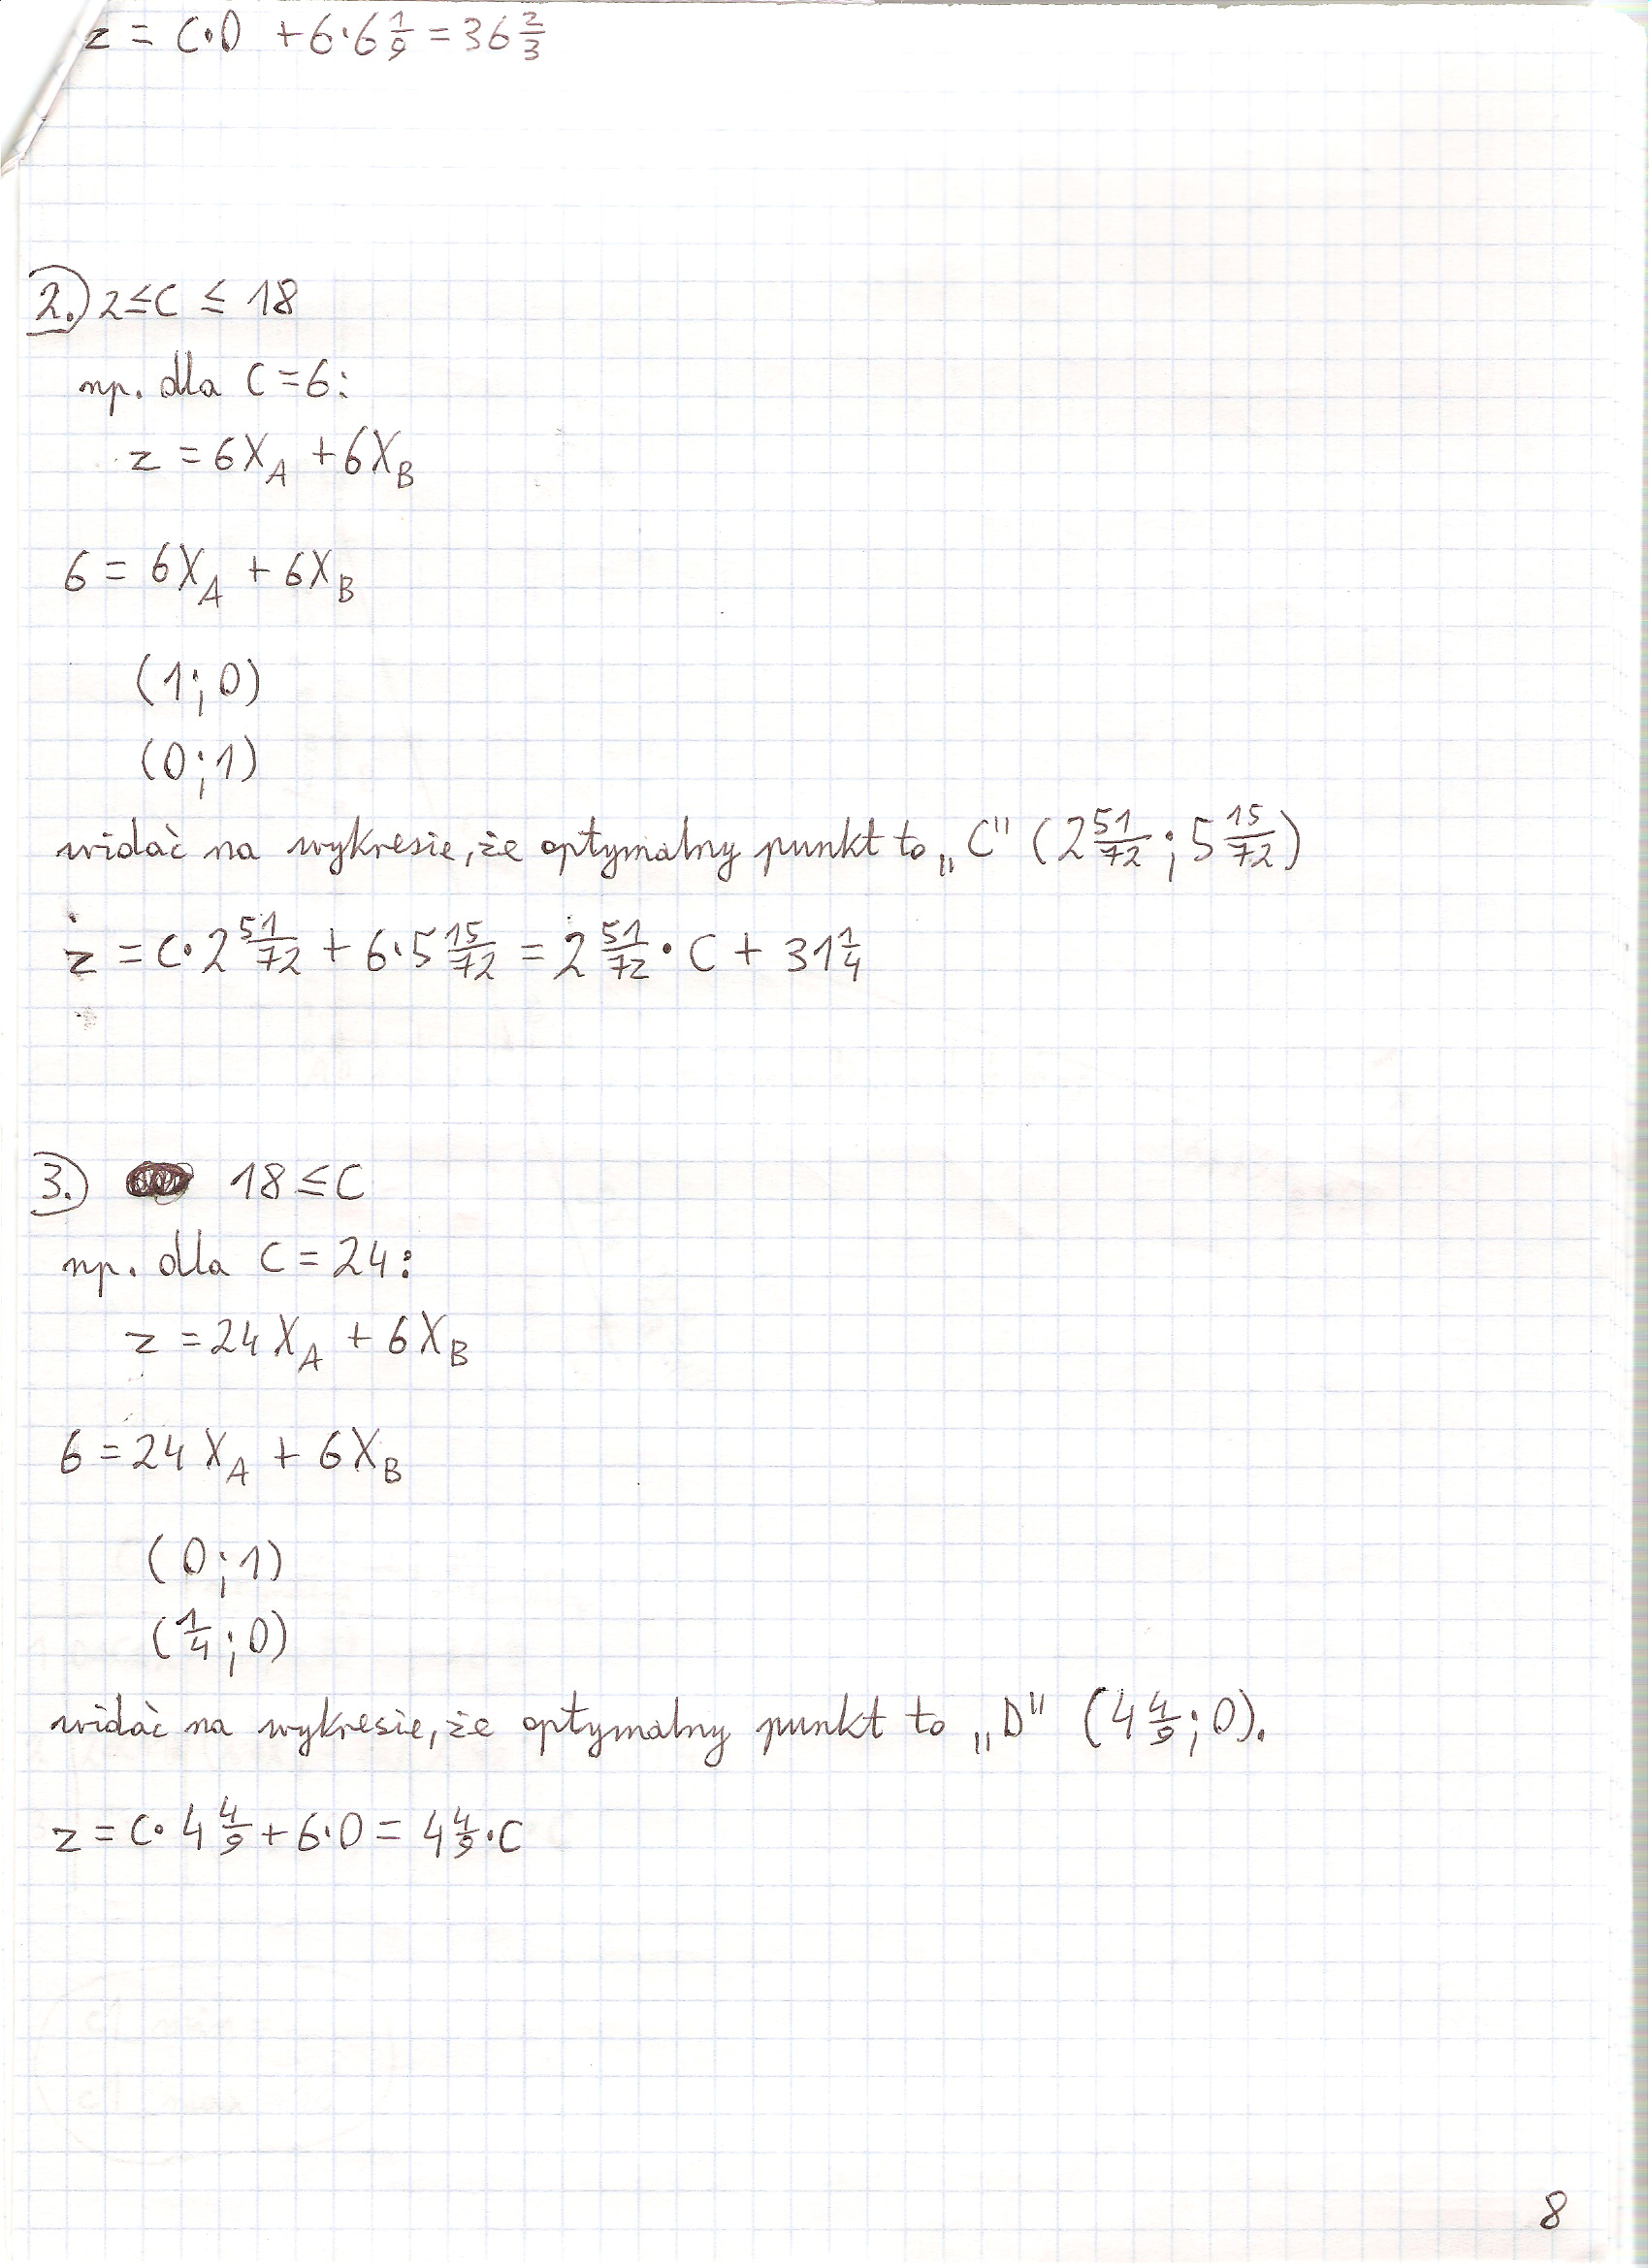 z = C·0 + 6·6 1/9 = 36 2/3
2.) 2 ≤ C ≤ 18
np. dla C = 6:
z = 6X_A + 6X_B
6 = 6X_A + 6X_B
(1; 0)
(0; 1)
widać na wykresie, że optymalny punkt to „C" (2 51/72; 5 15/72)
z = C·2 51/72 + 6·5 15/72 = 2 51/72 · C + 31 1/4
3.) 18 ≤ C
np. dla C = 24:
z = 24X_A + 6X_B
6 = 24X_A + 6X_B
(0; 1)
(1/4; 0)
widać na wykresie, że optymalny punkt to „D" (4 4/9; 0).
z = C·4 4/9 + 6·0 = 4 4/9·C
8